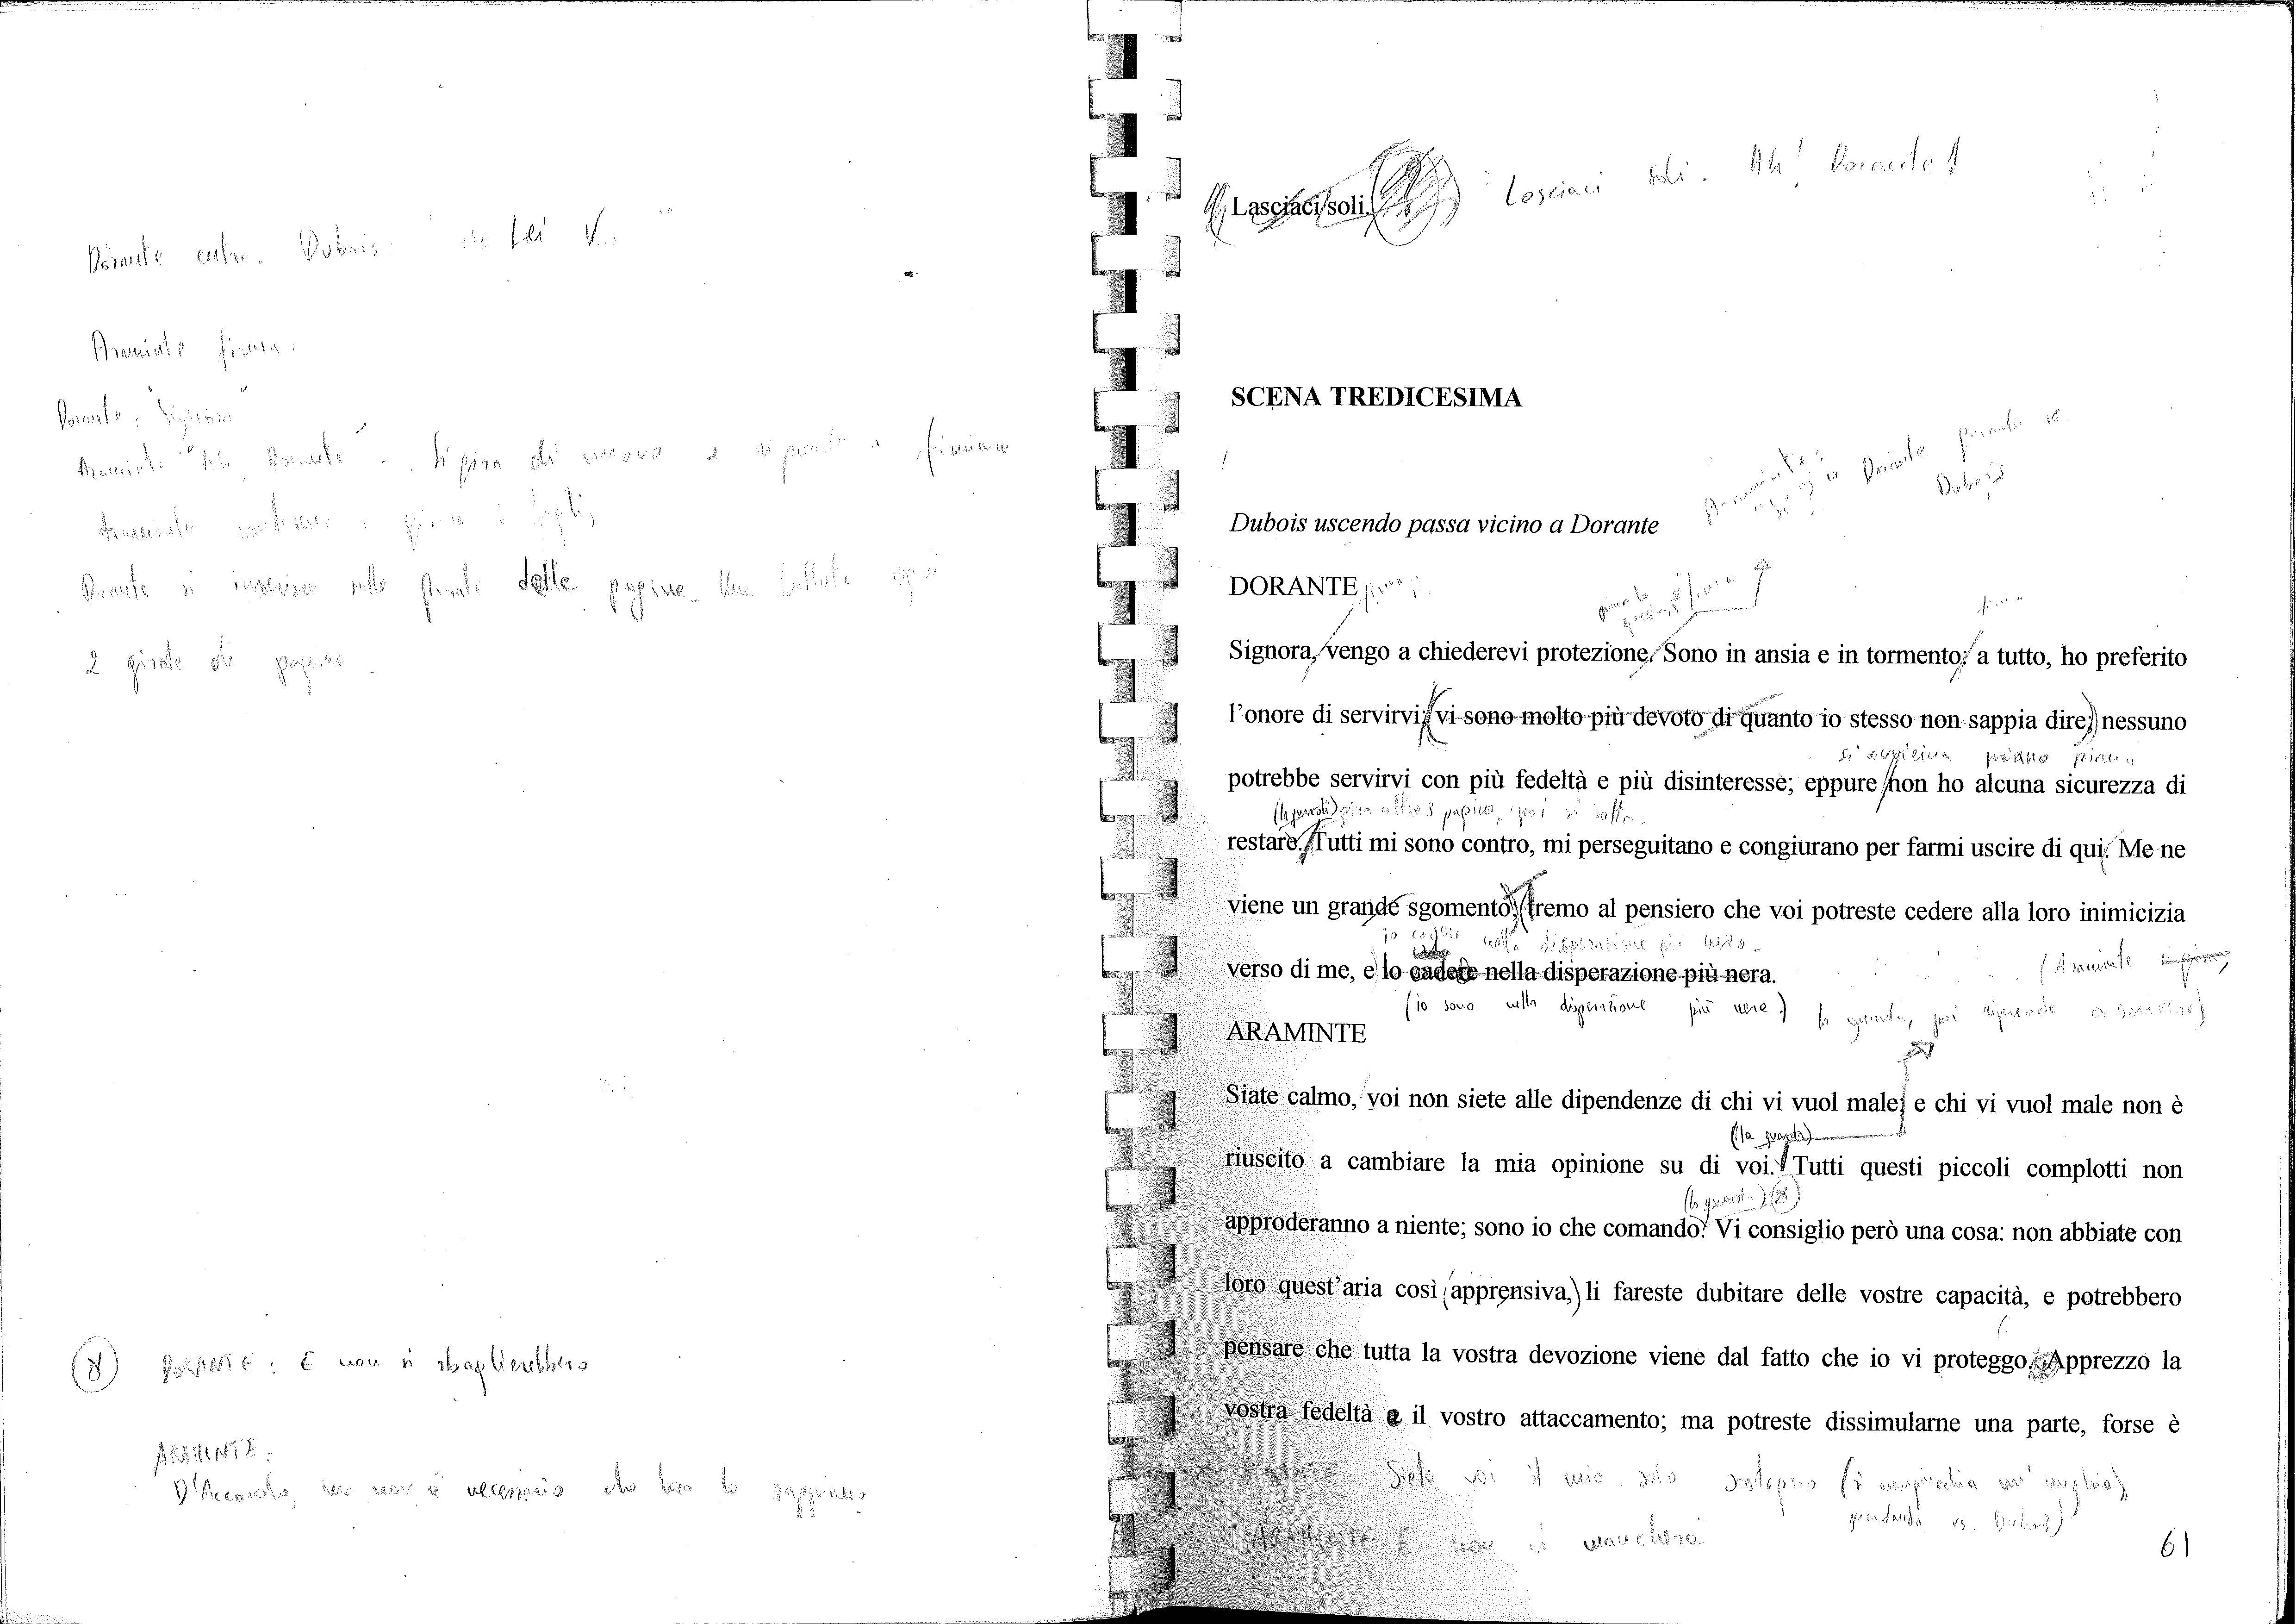 Dorante entra. Dubois: Lei
Araminte firma.
Dorante: "Signora"
Araminte "Ah, Dorante". Si gira di nuovo e riprende a firmare
Araminte continua a girare i fogli,
Dorante si inserisce sulle girate delle pagine. Una battuta ogni
2 girate di pagine
(*) DORANTE: E non si sbaglierebbero
ARAMINTE:
D'Accordo, ma non è necessario che loro lo sappiano
Lasciaci soli. Lasciaci soli - Ah! Dorante!
SCENA TREDICESIMA
Araminte: a Dorante guarda vs.
Dubois
Dubois uscendo passa vicino a Dorante
DORANTE
firma
Signora, vengo a chiedervi protezione. Sono in ansia e in tormento: a tutto, ho preferito
l'onore di servirvi; (vi sono molto più devoto di quanto io stesso non sappia dire;) nessuno
si avvicina piano piano
potrebbe servirvi con più fedeltà e più disinteresse; eppure non ho alcuna sicurezza di
(la guarda) gira altre 3 pagine, poi si volta
restare. Tutti mi sono contro, mi perseguitano e congiurano per farmi uscire di qui. Me ne
viene un grande sgomento, (tremo al pensiero che voi potreste cedere alla loro inimicizia
io cadere nella disperazione più nera.
verso di me, e) Io cadere nella disperazione più nera.
(Araminte
(io sono nella disperazione più nera) lo guarda, poi riprende a scrivere)
ARAMINTE
Siate calmo, voi non siete alle dipendenze di chi vi vuol male; e chi vi vuol male non è
(la guarda)
riuscito a cambiare la mia opinione su di voi. Tutti questi piccoli complotti non
(lo guarda) (*)
approderanno a niente; sono io che comando. Vi consiglio però una cosa: non abbiate con
loro quest'aria così (apprensiva,) li fareste dubitare delle vostre capacità, e potrebbero
pensare che tutta la vostra devozione viene dal fatto che io vi proteggo. Apprezzo la
vostra fedeltà e il vostro attaccamento; ma potreste dissimularne una parte, forse è
(*) DORANTE: Siete voi il mio solo sostegno
guardando vs. Dubois)
ARAMINTE: E non vi mancherà
61